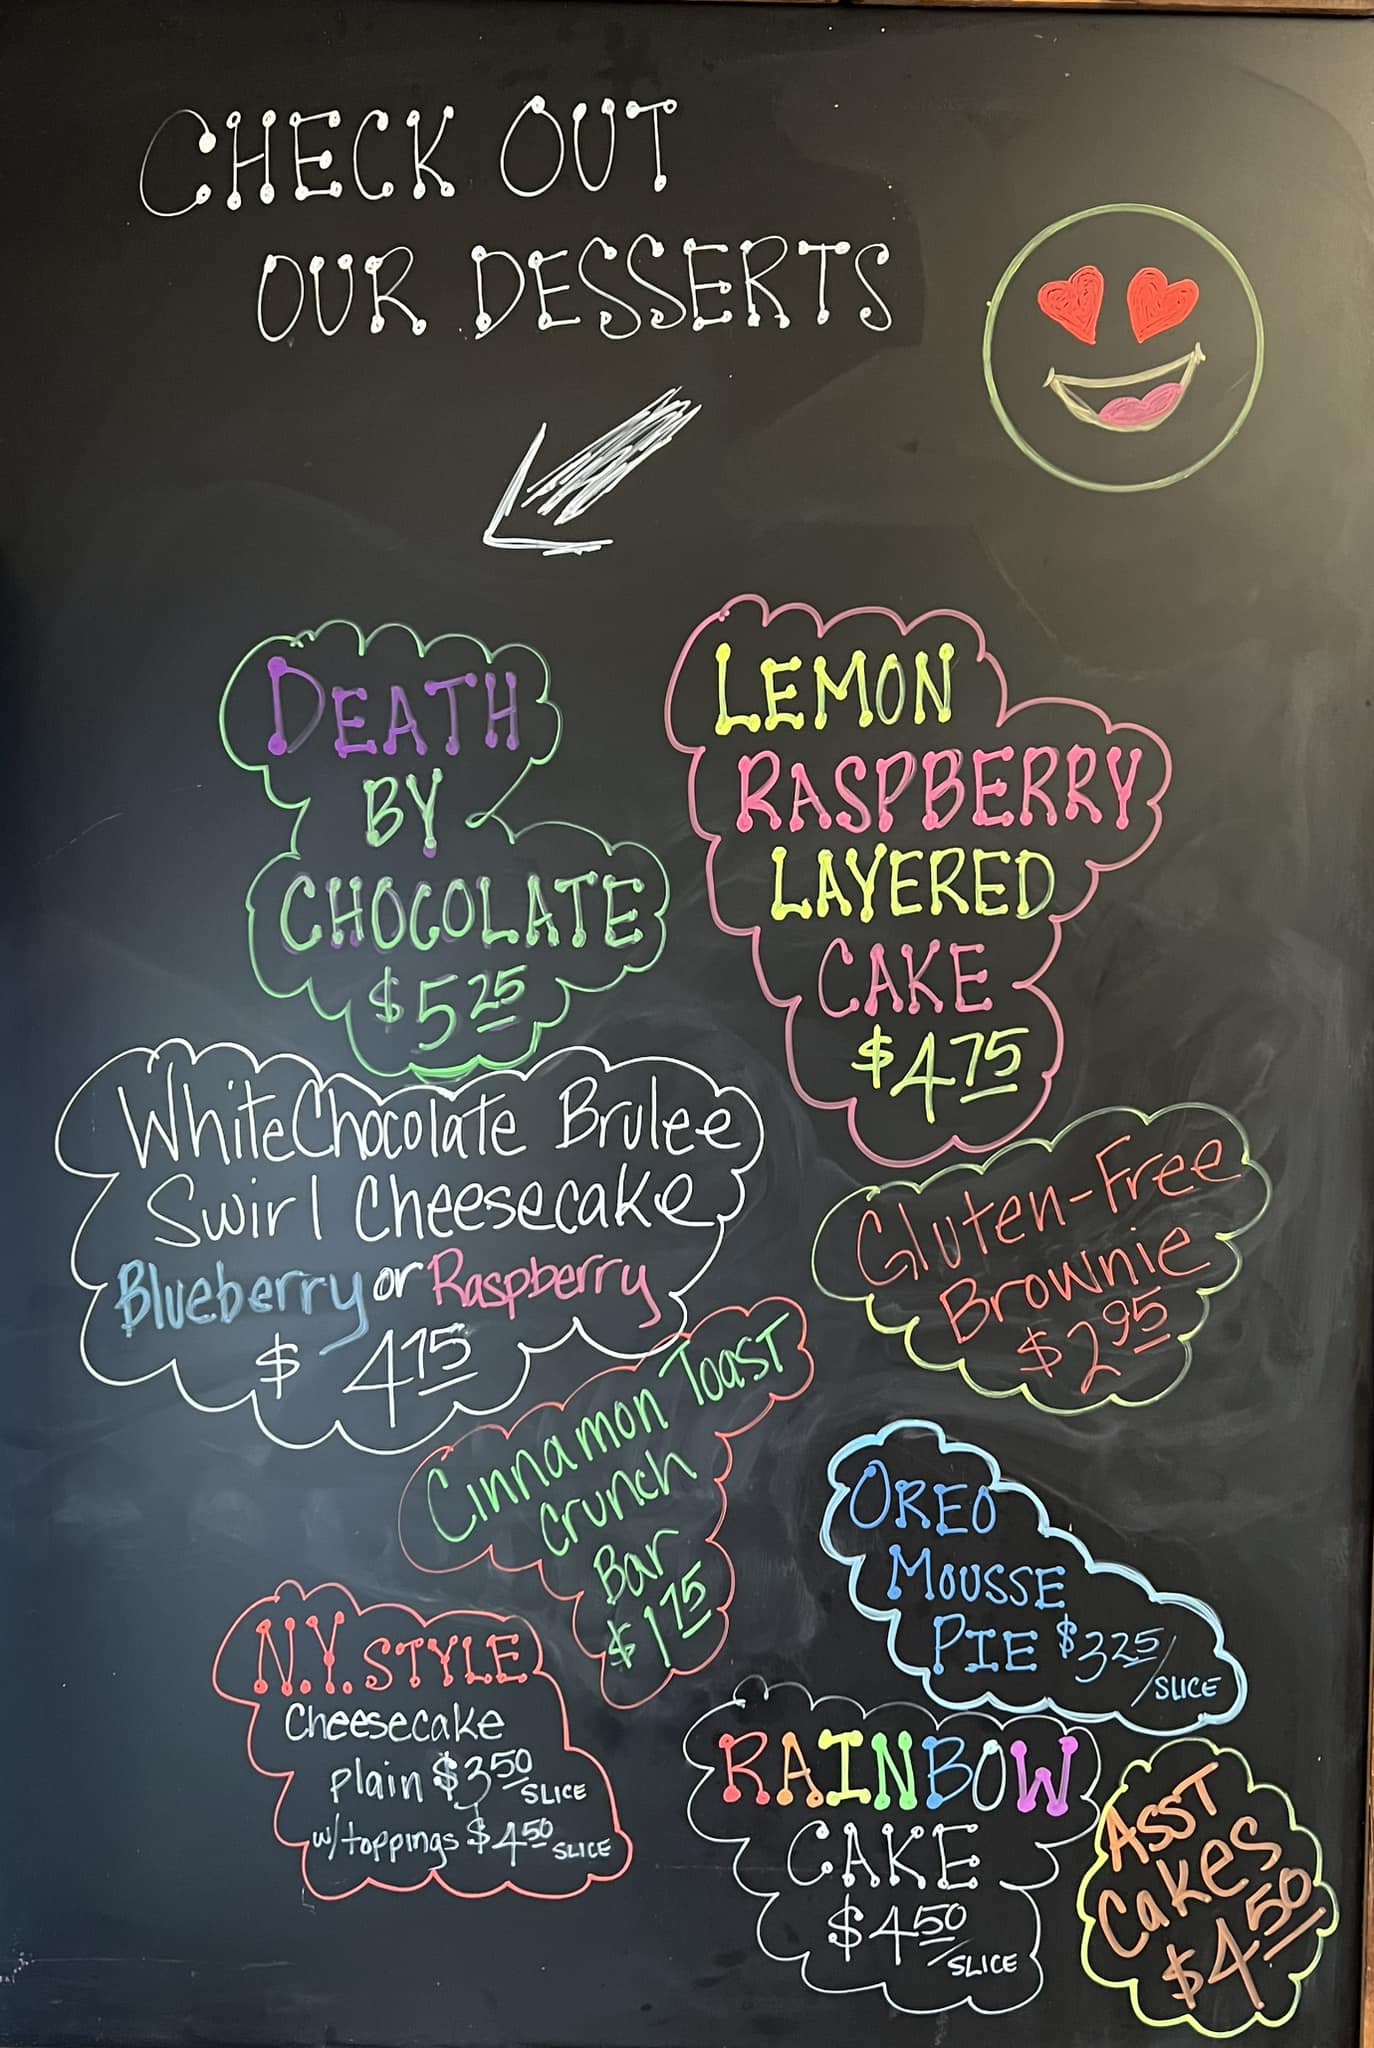 CHECK OUT
OUR DESSERTS
DEATH
BY
CHOCOLATE
$5.25
LEMON
RASPBERRY
LAYERED
CAKE
$4.75
White Chocolate Brulee
Swirl Cheesecake
Blueberry or Raspberry
$4.75
Gluten-Free
Brownie
$2.95
Cinnamon Toast
Crunch
Bar
$1.75
OREO
MOUSSE
PIE $3.25/SLICE
N.Y. STYLE
Cheesecake
plain $3.50/SLICE
w/toppings $4.50/SLICE
RAINBOW
CAKE
$4.50/SLICE
ASST
Cakes
$4.50